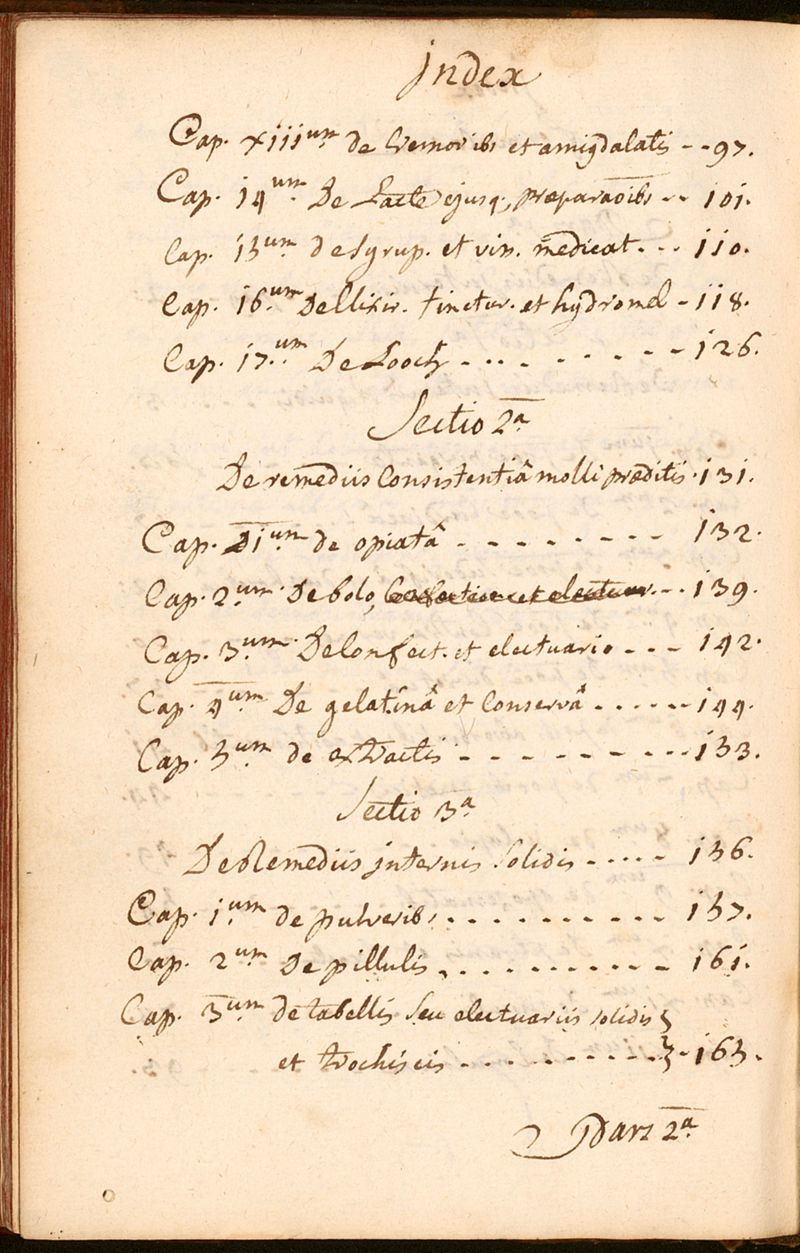 Index
Cap. xiii^um de cremoribs et amigdalatis - - 97.
Cap. 14^um. De Lacte ejusq. præparaõibs - - 101.
Cap. 15^um. de Syrup. et vin. medicat. - - 110.
Cap. 16^um. De Elixir. tinctur. et hydromel - 118.
Cap. 17^um. De Looch - - - - - - - - - 126.
Sectio 2^a
De remediis Consistentiâ molli præditis. 131.
Cap. 1^um. de opiatâ - - - - - - - - 132.
Cap. 2^um. De bolo, Confectione et electuar. - - 139.
Cap. 3^um. De Confect. et electuario - - - 142.
Cap. 4^um. De gelatinâ et Conservâ - - - - - 144.
Cap. 5^um. de extractis - - - - - - - - - 153.
Sectio 3^a
De Remediis internis Solidis - - - - - 156.
Cap. 1^um. de pulveribs - - - - - - - - - - 157.
Cap. 2^um. De pillulis - - - - - - - - - - 161.
Cap. 3^um. de tabellis Seu electuariis solidis
et trochiscis - - - - - - - - - - - 165.
Pars 2^a